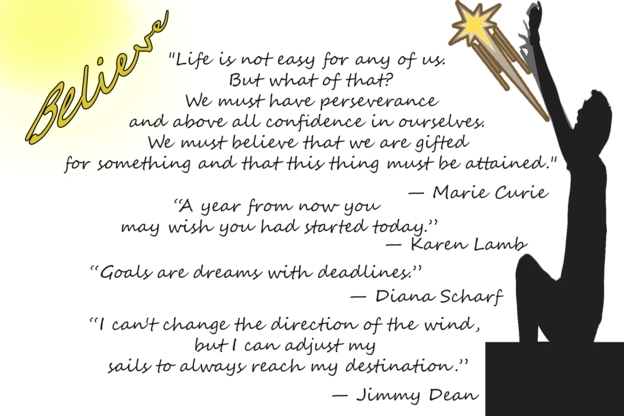 Believe
"Life is not easy for any of us.
But what of that?
We must have perseverance
and above all confidence in ourselves.
We must believe that we are gifted
for something and that this thing must be attained."
— Marie Curie
“A year from now you
may wish you had started today.”
— Karen Lamb
“Goals are dreams with deadlines.”
— Diana Scharf
“I can't change the direction of the wind,
but I can adjust my
sails to always reach my destination.”
— Jimmy Dean